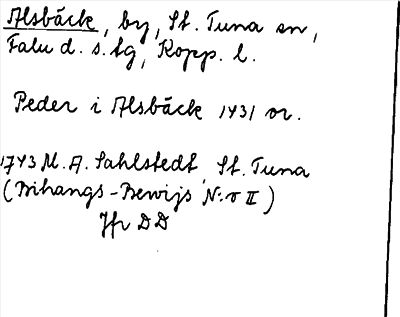 Alsbäck, by, St. Tuna sn,
Falu d. s. tg, Kopp. l.
Peder i Alsbäck 1431 or.
1743 M. A. Sahlstedt St. Tuna
(Bihangs-Bewijs N:o II)
Jfr DD